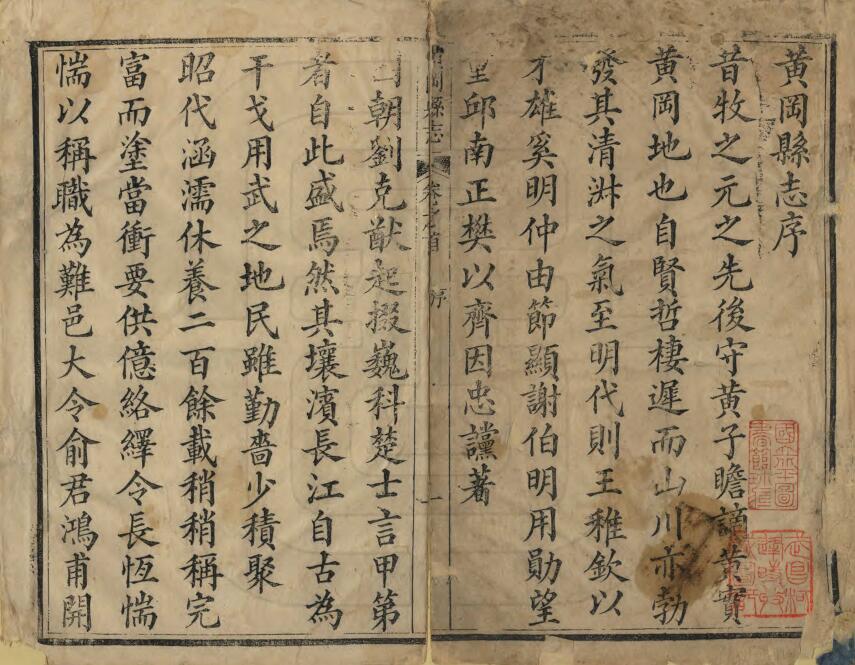 黄岡縣志序
昔牧之元之先後守黄子瞻謫黄實
黄岡地也自賢哲棲遲而山川亦勃
發其清淑之氣至明代則王稚欽以
才雄奚明仲由節顯謝伯明用勛望
重邱南正樊以齊因忠讜著
岡縣志
卷之首
序
一
國朝劉克猷起掇巍科楚士言甲第
者自此盛焉然其壤濱長江自古為
干戈用武之地民雖勤嗇少積聚
昭代涵濡休養二百餘載稍稍稱完
富而塗當衝要供億絡繹令長恆惴
惴以稱職為難邑大令俞君鴻甫開